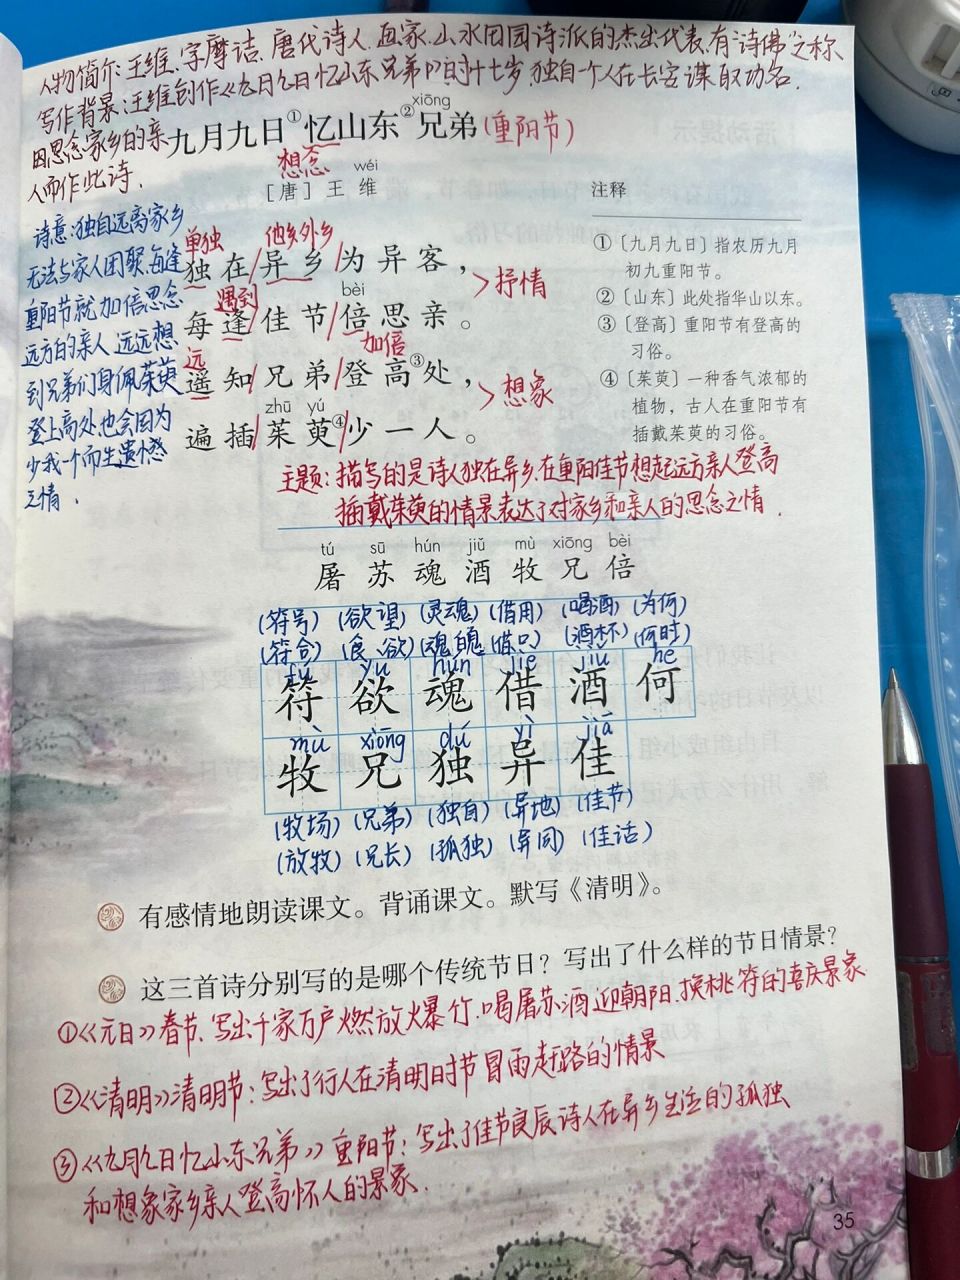 人物简介:王维,字摩诘,唐代诗人,画家,山水田园诗派的杰出代表,有"诗佛"之称
写作背景:王维创作《九月九日忆山东兄弟》的时十七岁,独自一个人在长安谋取功名,
因思念家乡的亲
人而作此诗.
xiōng
九月九日①忆山东②兄弟(重阳节)
想念
wéi
[唐] 王 维
诗意:独自远离家乡
无法与家人团聚,每逢
重阳节就加倍思念
远方的亲人,远远想
到兄弟们身佩茱萸
登上高处,也会因为
少我一个而生遗憾
之情.
单独 他乡外乡
独在/异乡/为异客, >抒情
遇到 bèi
每逢/佳节/倍思亲。
远 加倍
遥知/兄弟/登高③处, >想象
zhū yú
遍插/茱萸④/少一人。
注释
①〔九月九日〕指农历九月
初九重阳节。
②〔山东〕此处指华山以东。
③〔登高〕重阳节有登高的
习俗。
④〔茱萸〕一种香气浓郁的
植物,古人在重阳节有
插戴茱萸的习俗。
主题:描写的是诗人独在异乡,在重阳佳节想起远方亲人登高
插戴茱萸的情景表达了对家乡和亲人的思念之情.
tú sū hún jiǔ mù xiōng bèi
屠 苏 魂 酒 牧 兄 倍
(符号) (欲望) (灵魂) (借用) (喝酒) (为何)
(符合) (食欲) (魂魄) (借口) (酒杯) (何时)
fú yù hún jiè jiǔ hé
符 欲 魂 借 酒 何
mù xiōng dú yì jiā
牧 兄 独 异 佳
(牧场) (兄弟) (独自) (异地) (佳节)
(放牧) (兄长) (孤独) (异同) (佳话)
有感情地朗读课文。背诵课文。默写《清明》。
这三首诗分别写的是哪个传统节日?写出了什么样的节日情景?
①《元日》春节,写出千家万户燃放火爆竹,喝屠苏酒,迎朝阳,换桃符的喜庆景象
②《清明》清明节:写出了行人在清明时节冒雨赶路的情景
③《九月九日忆山东兄弟》重阳节:写出了佳节良辰诗人在异乡生活的孤独
和想象家乡亲人登高怀人的景象.
35